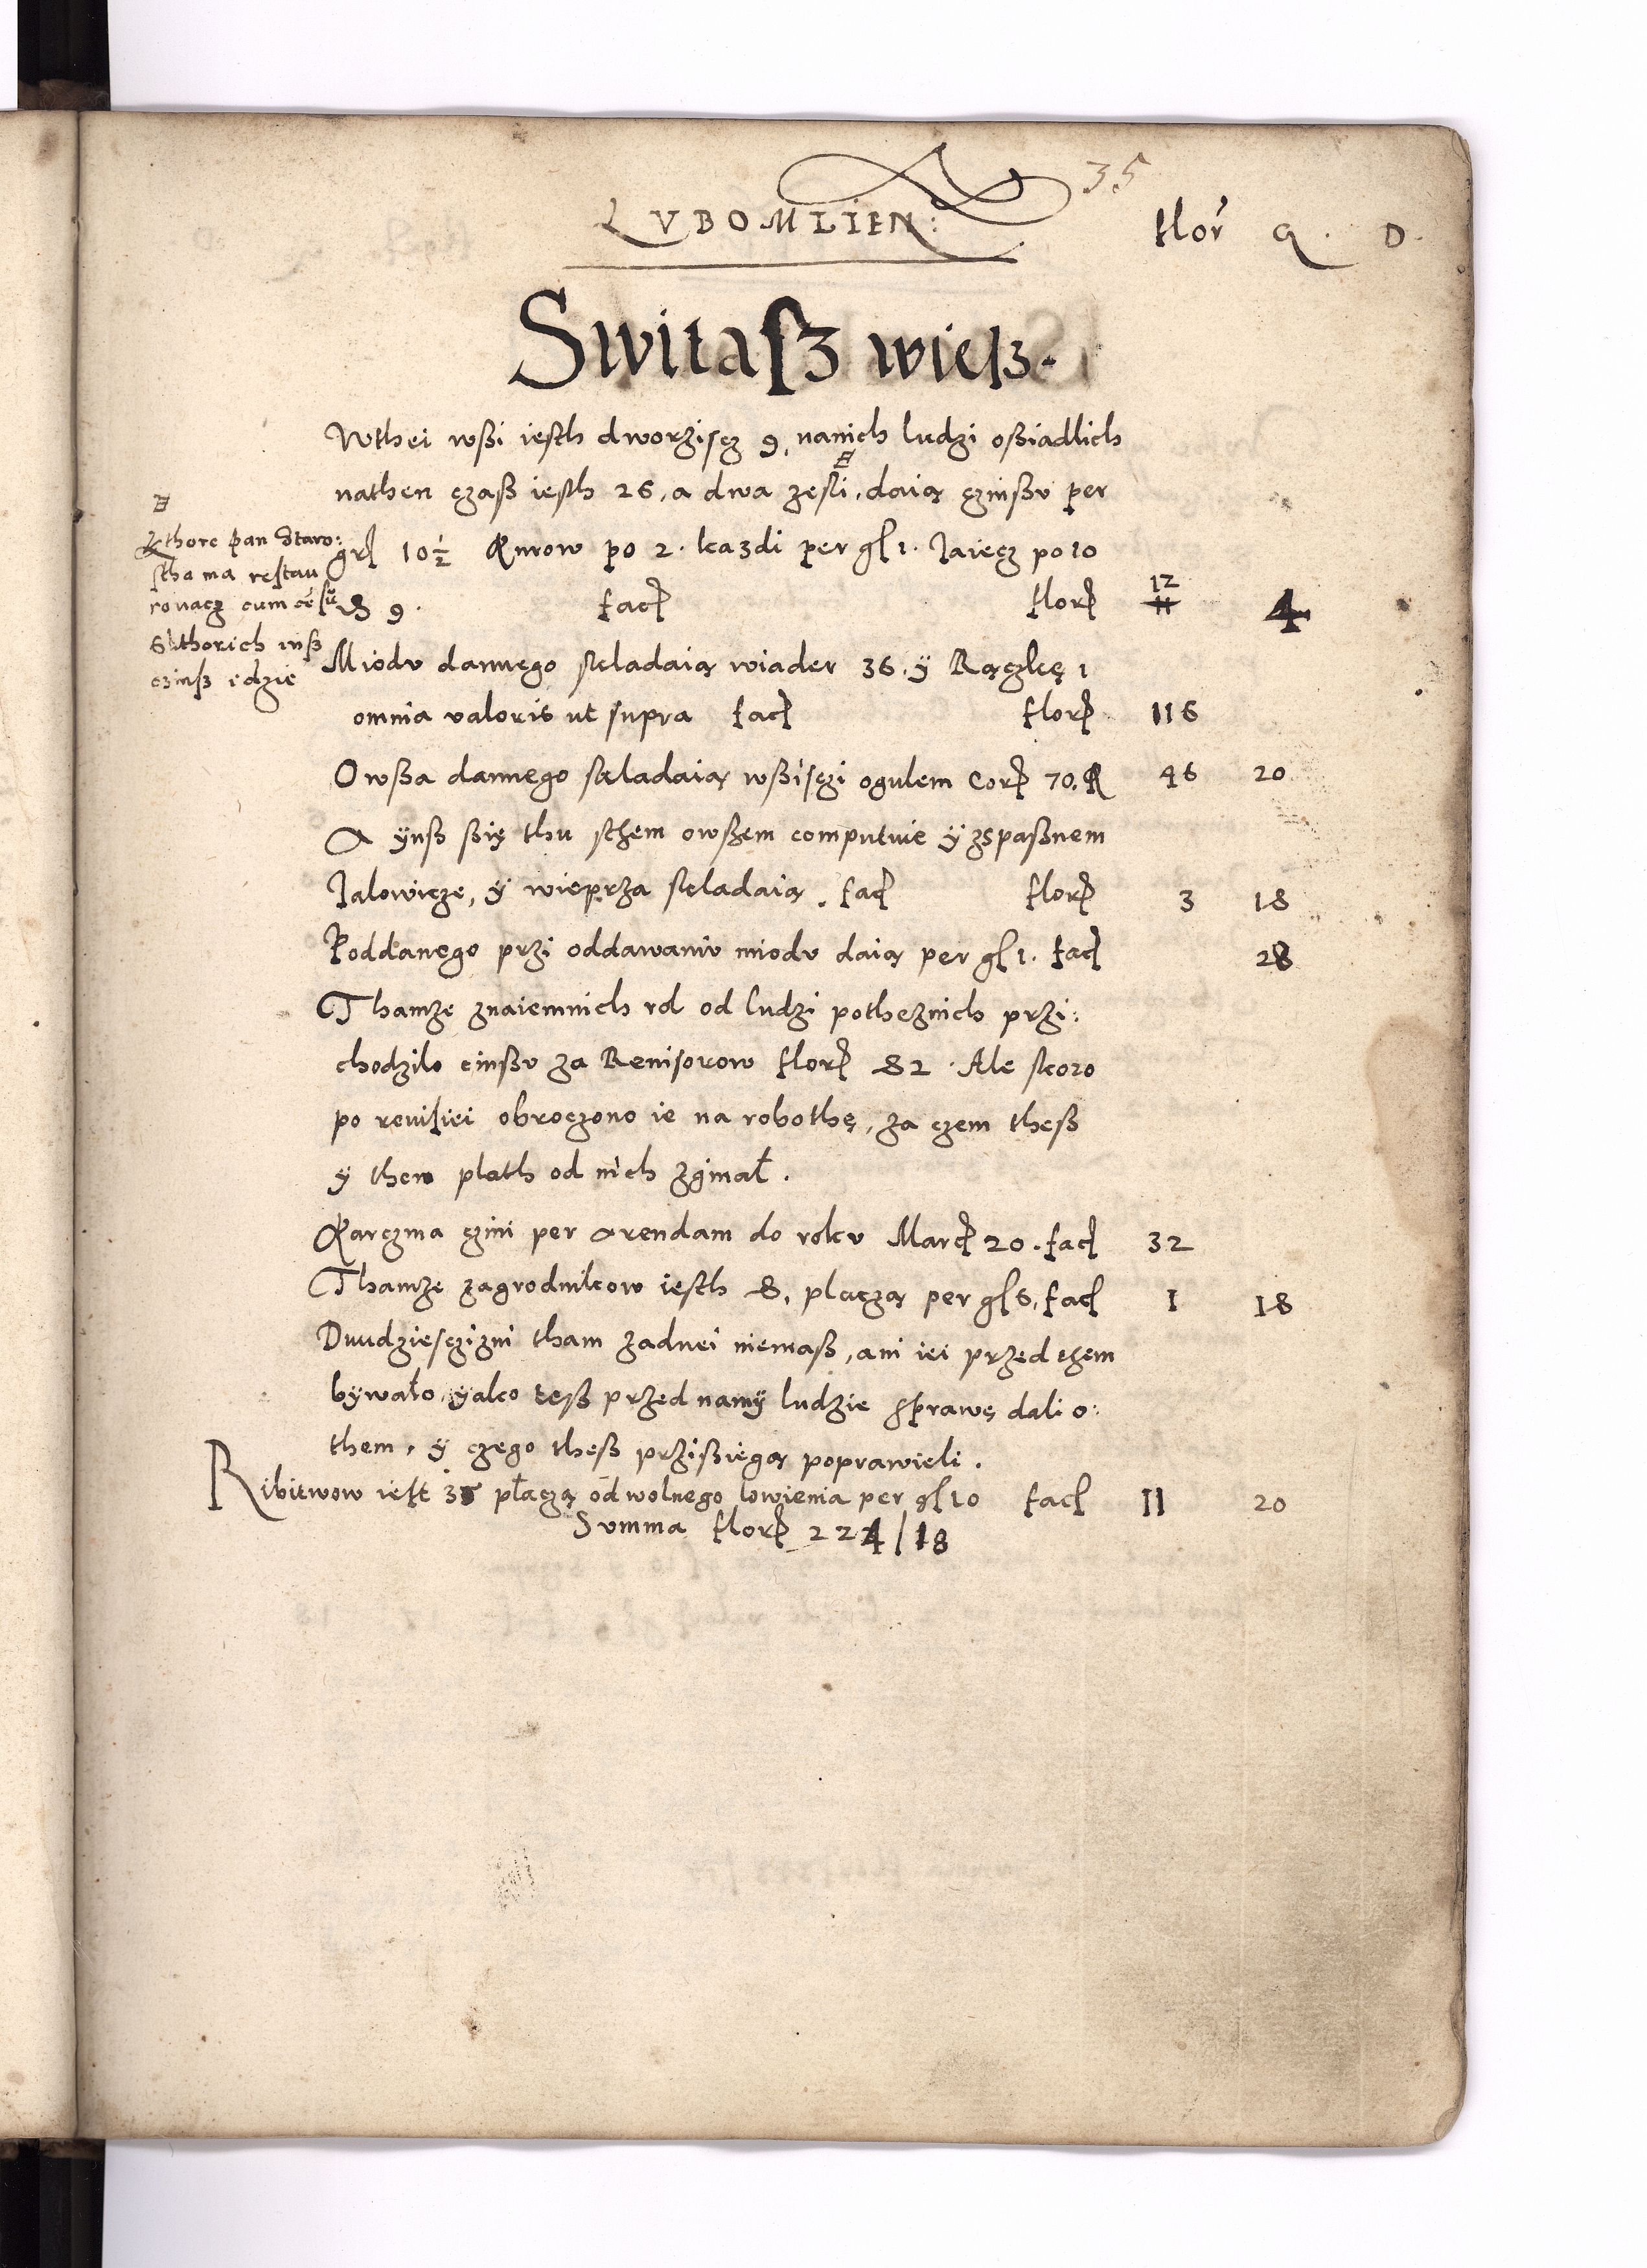 35
LVBOMLIEN:
flor G. D.
Switaſz wieſz.
Wthei wßi iesth dworziſcz 9, nanich ludzi oßiadlich
nathen czaß iesth 26, a dwa zesli, daią czinßv per
grſ 10½ Kurow po 2. kazdi per gſ 1. Jaiecz po 10
& 9. facſ florſ 12 11 4
Kthore pan Staro:
stha ma restau
rovacz cum cēſū
6 kthorich inß
czinß idzie
Miodv dannego skladaią wiader 36. ÿ Rączkę 1
omnia valoris ut supra facſ florſ 116
Owßa dannego skladaią wßiſczi ogulem Corſ 70. 46 20
A ynß ßię thu sthem owßem computuie ÿ zspaßnem
Jalowicze, ÿ wieprza skladaią. facſ florſ 3 18
Poddanego przi oddawaniv miodv daią per gſ 1. facſ 28
Thamze znaiemnich rol od ludzi potheznich przi:
chodzilo cinßv za Revisorow florſ 82. Ale skoro
po reviſiei obroczono ie na robothę, za czem theß
y then plath od nich zginał.
Karczma czini per arendam do rokv Marcſ 20. facſ 32
Thamze zagrodnikow iesth 8, placzą per gſ 6, facſ 1 18
Dwudzieſczizni tham zadnei niemaß, ani iei przed tzem
bywało, yako teß przed namÿ ludzie sprawę dali o:
them, ÿ czego theß przißiegą poprawieli.
Ribitwow iest 35 płaczą od wolnego lowienia per gſ 10 facſ 11 20
Summa florſ 224/18